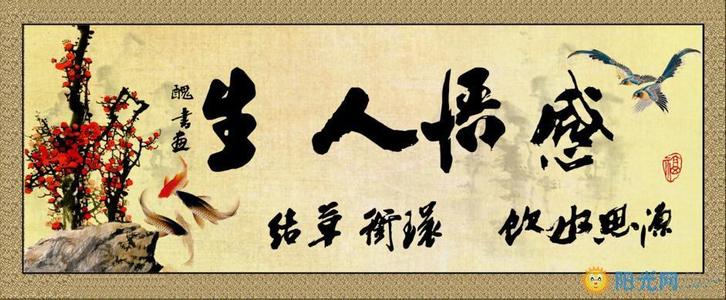 感悟人生
结草衔環 饮水思源
醜書画
福
阳光网